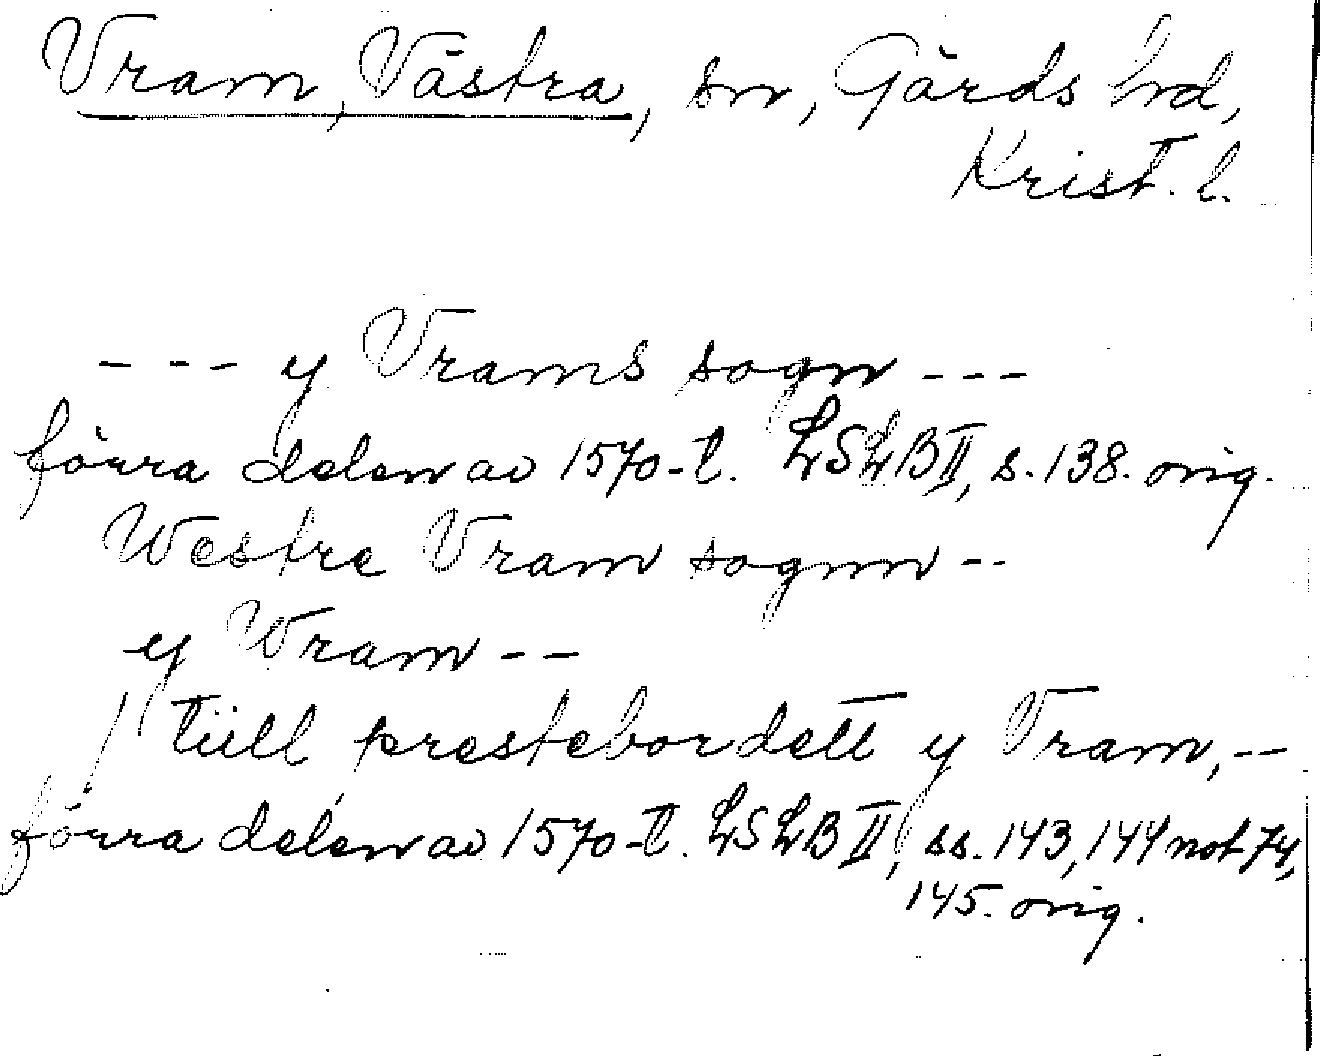 Vram, Västra, sn, Gärds hd,
Krist. l.
- - - y Vrams sogn - - -
förra delen av 1570-t. LSLB II, s. 138. orig.
Westre Vram sognn - -
y Wram - -
till prestebordett y Vram, - -
förra delen av 1570-t. LSLB II, ss. 143, 144 not 74,
145. orig.